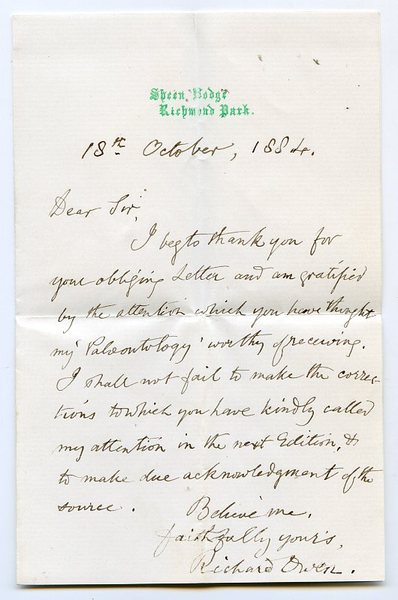 Sheen Lodge
Richmond Park.
18th October, 1884.
Dear Sir,
I beg to thank you for
your obliging Letter and am gratified
by the attention which you have thought
my 'Palæontology' worthy of receiving.
I shall not fail to make the correc-
tions to which you have kindly called
my attention in the next Edition, &
to make due acknowledgment of the
source. Believe me,
faithfully yours,
Richard Owen.